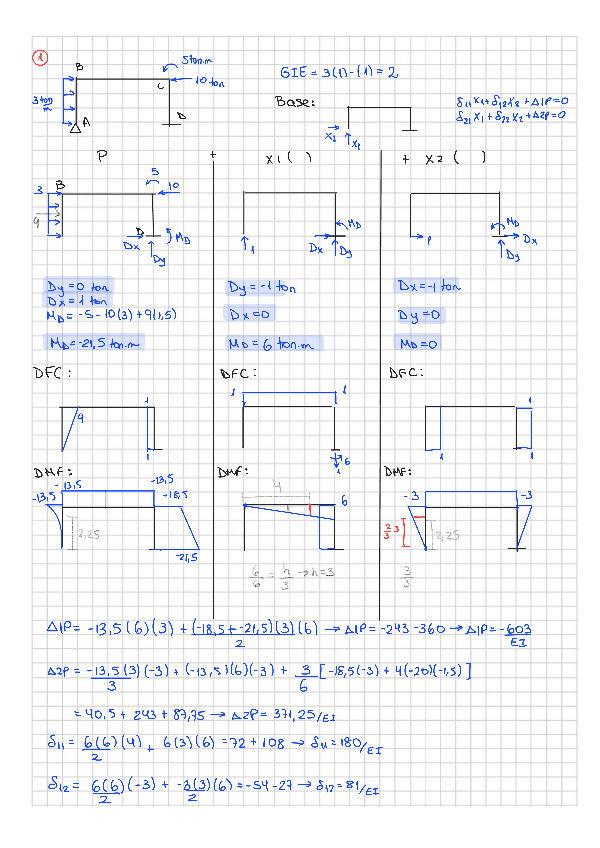 1
B
5 ton.m
C
10 ton
3 ton
m
A
D
GIE = 3(1)-(1) = 2
Base:
X2
X1
δ11 X1 + δ12 X2 + Δ1P = 0
δ21 X1 + δ22 X2 + Δ2P = 0
P + X1 ( ) + X2 ( )
3
B
5
10
9
D
Dx
Dy
MD
1
MD
Dx
Dy
P
MD
Dx
Dy
Dy = 0 ton
Dx = 1 ton
MD = -5 - 10(3) + 9(1,5)
MD = -21,5 ton.m
Dy = -1 ton
Dx = 0
MD = 6 ton.m
Dx = -1 ton
Dy = 0
MD = 0
DFC: DFC: DFC:
9
1
1
1
1
6
1
1
1
1
DMF: DMF: DMF:
-13,5
-13,5
-13,5
-18,5
2,25
-21,5
4
6
6/6 = h/3 → h=3
-3
-3
2/3 3
2,25
3/3
Δ1P = -13,5(6)(3) + (-18,5+-21,5)(3)(6)/2 → Δ1P = -243 - 360 → Δ1P = -603/EI
Δ2P = -13,5(3)(-3)/3 + (-13,5)(6)(-3) + 3/6 [-18,5(-3) + 4(-20)(-1,5)]
= 40,5 + 243 + 87,75 → Δ2P = 371,25/EI
δ11 = 6(6)(4)/2 + 6(3)(6) = 72 + 108 → δ11 = 180/EI
δ12 = 6(6)(-3)/2 + -3(3)(6)/2 = -54 - 27 → δ12 = 81/EI